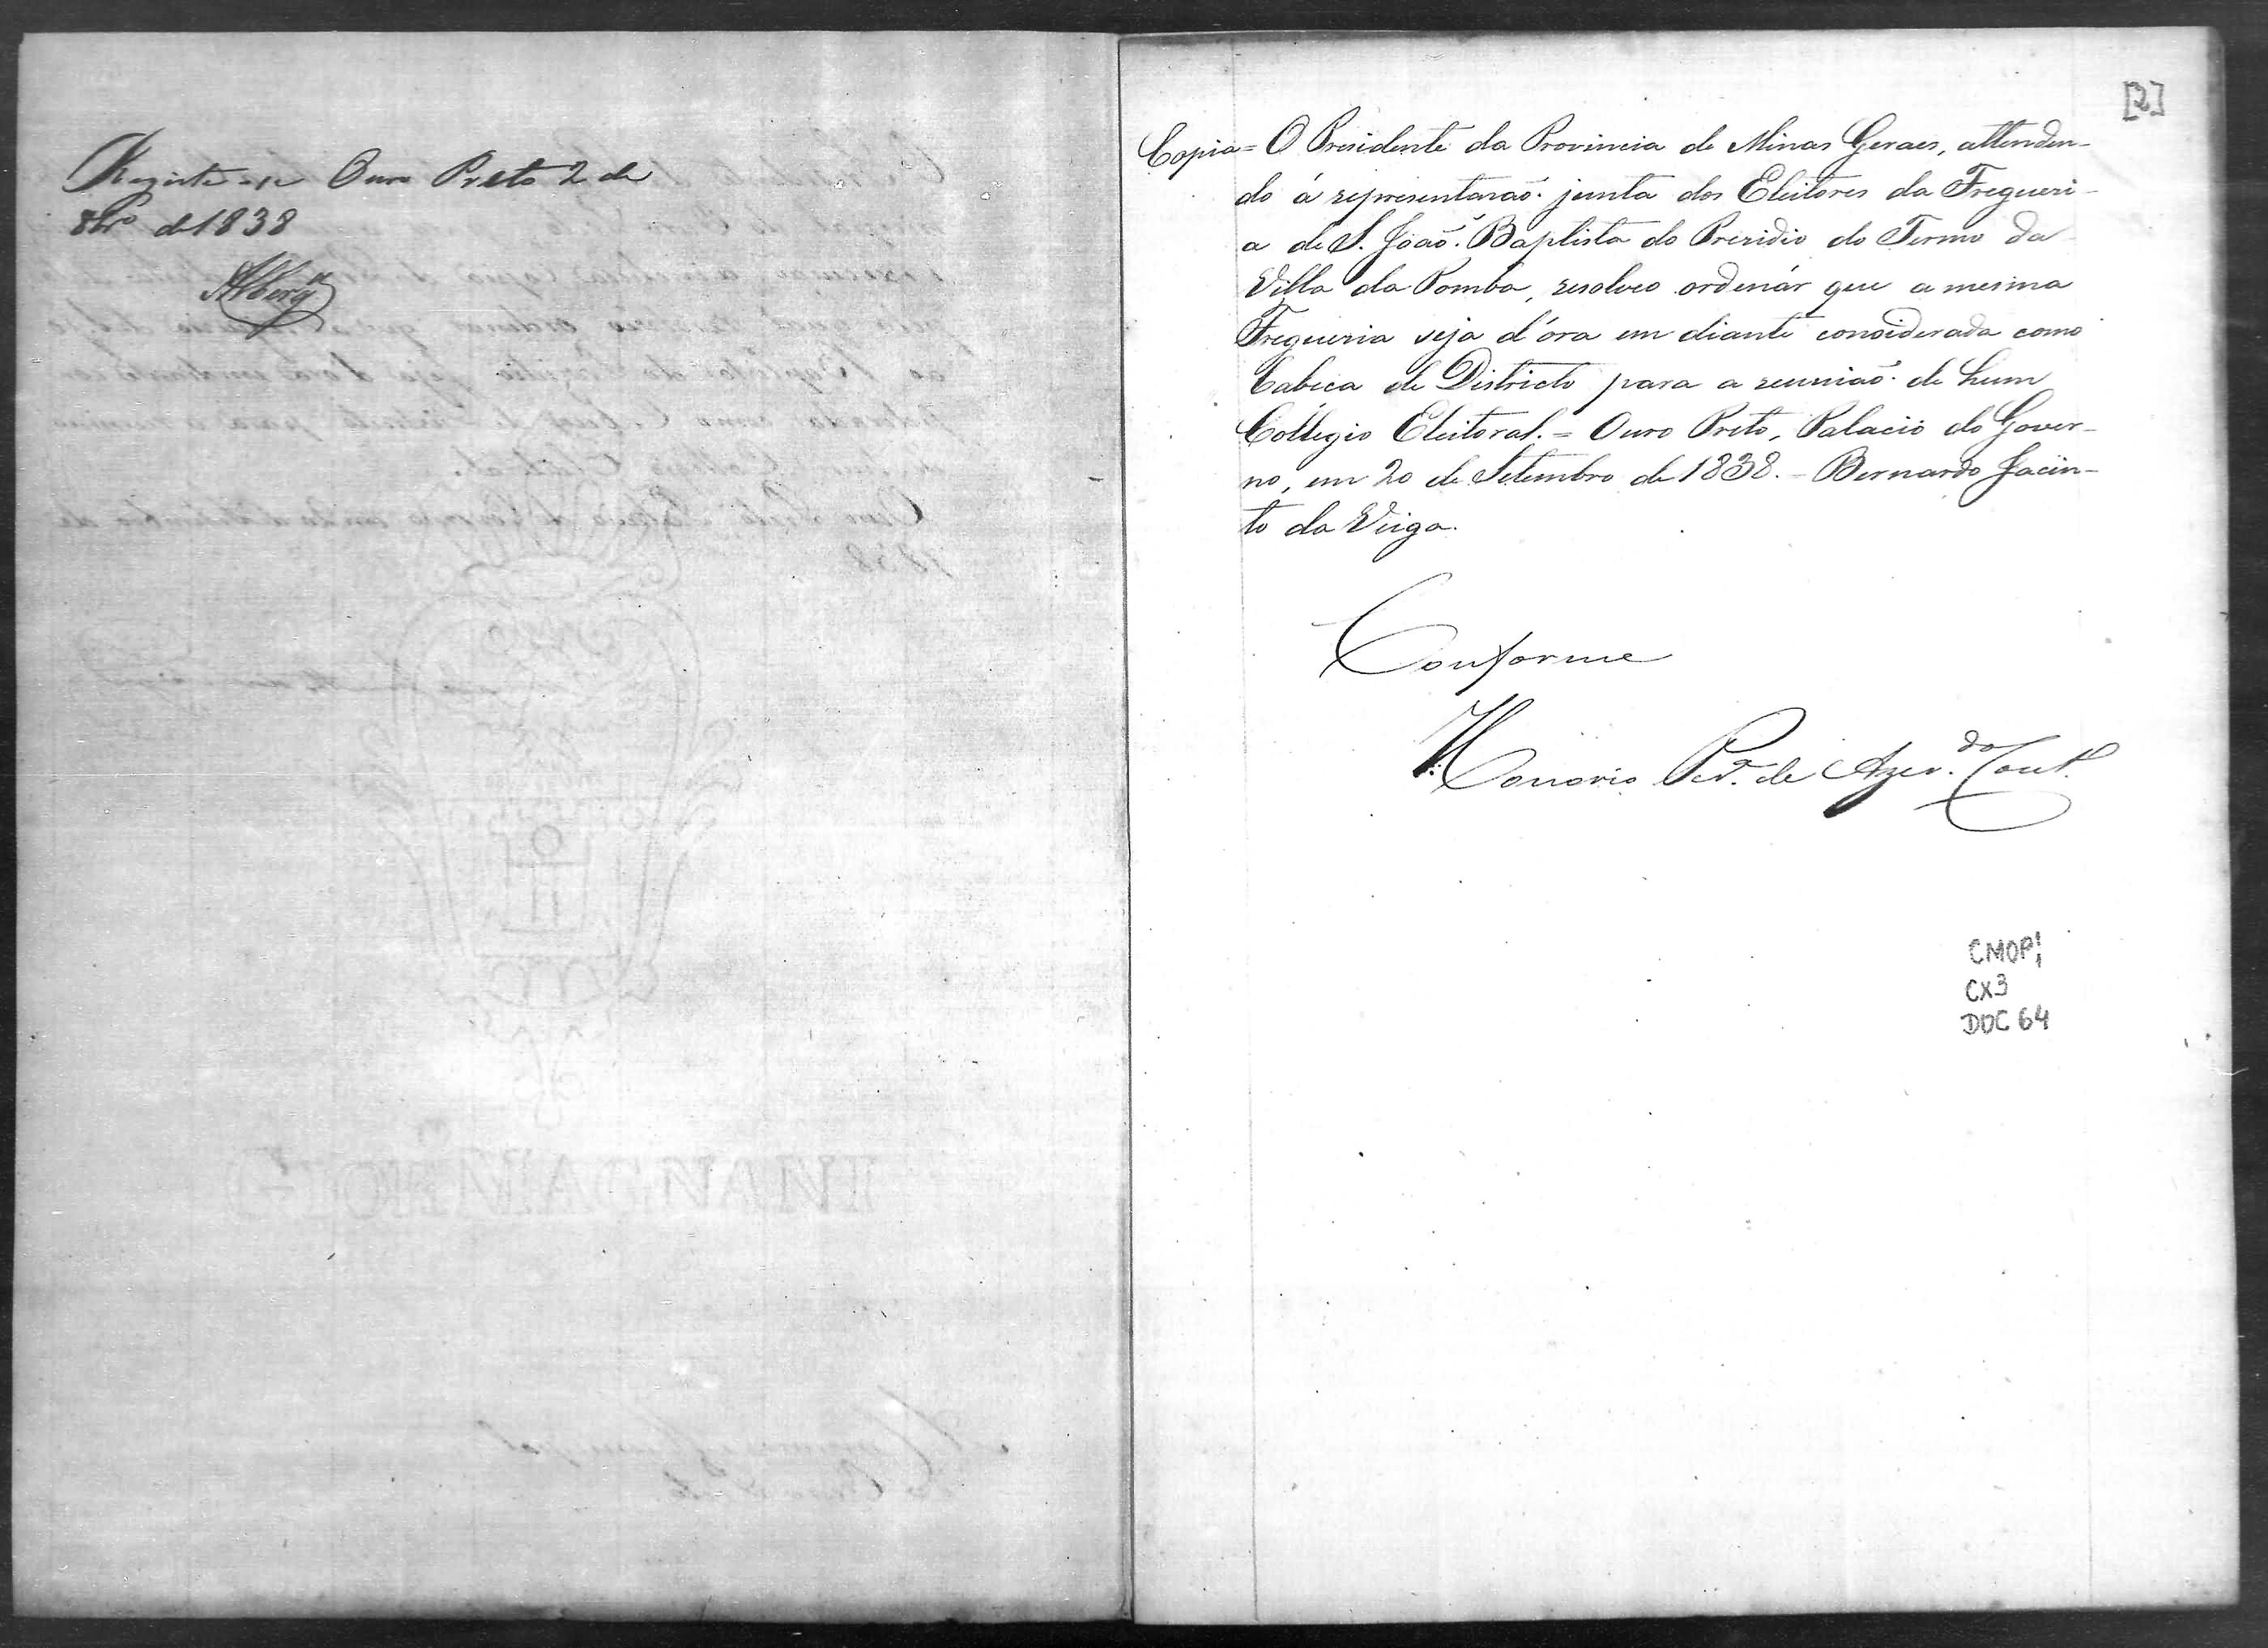 Registe-se Ouro Preto 2 de
8bro de 1838
[2]
Copia = O Presidente da Provincia de Minas Geraes, attenden-
do á representacaõ junta dos Eleitores da Freguezi-
a de S. Joaõ Baptista do Presidio do Termo da
Villa da Pomba, resolveo ordenár que a mesma
Freguezia seja d'óra em diante considerada como
Cabeca de Districto para a reuniaõ de hum
Collegio Eleitoral. = Ouro Preto, Palacio do Gover-
no, em 20 de Setembro de 1838. - Bernardo Jacin-
to da Veiga.
Conforme
Honorio Per.ª de Azer.do Cout.º
CMOP;
CX3
DOC 64